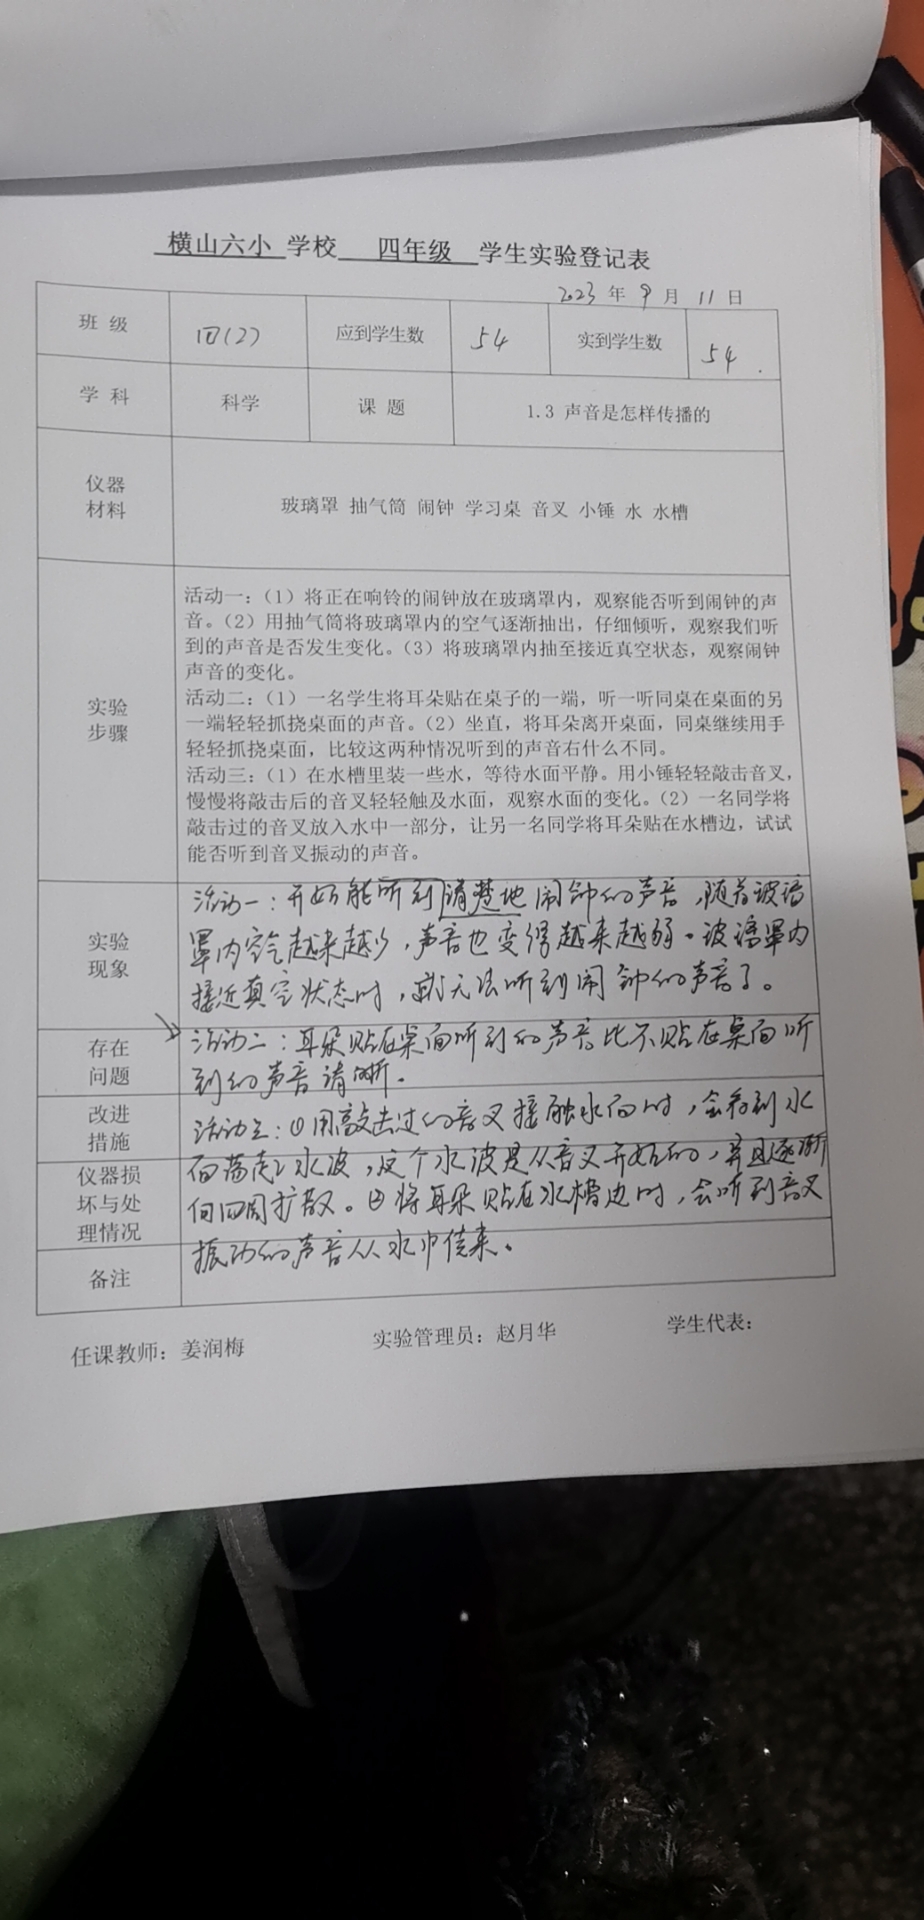 横山六小 学校 四年级 学生实验登记表
2023 年 9 月 11 日
班 级 四(2) 应到学生数 54 实到学生数 54 .
学 科 科学 课 题 1.3 声音是怎样传播的
仪器
材料
玻璃罩 抽气筒 闹钟 学习桌 音叉 小锤 水 水槽
实验
步骤
活动一：（1）将正在响铃的闹钟放在玻璃罩内，观察能否听到闹钟的声
音。（2）用抽气筒将玻璃罩内的空气逐渐抽出，仔细倾听，观察我们听
到的声音是否发生变化。（3）将玻璃罩内抽至接近真空状态，观察闹钟
声音的变化。
活动二：（1）一名学生将耳朵贴在桌子的一端，听一听同桌在桌面的另
一端轻轻抓挠桌面的声音。（2）坐直，将耳朵离开桌面，同桌继续用手
轻轻抓挠桌面，比较这两种情况听到的声音右什么不同。
活动三：（1）在水槽里装一些水，等待水面平静。用小锤轻轻敲击音叉，
慢慢将敲击后的音叉轻轻触及水面，观察水面的变化。（2）一名同学将
敲击过的音叉放入水中一部分，让另一名同学将耳朵贴在水槽边，试试
能否听到音叉振动的声音。
实验
现象
活动一：开始能听到清楚地闹钟的声音，随着玻璃
罩内空气越来越少，声音也变得越来越弱。玻璃罩内
接近真空状态时，就无法听到闹钟的声音了。
存在
问题
活动二：耳朵贴在桌面听到的声音比不贴在桌面听
到的声音清晰.
改进
措施
活动三：①用敲击过的音叉接触水面时，会看到水
仪器损
坏与处
理情况
面荡起水波，这个水波是从音叉开始的，并且逐渐
向四周扩散。②将耳朵贴在水槽边时，会听到音叉
备注
振动的声音从水中传来。
任课教师：姜润梅 实验管理员：赵月华 学生代表：